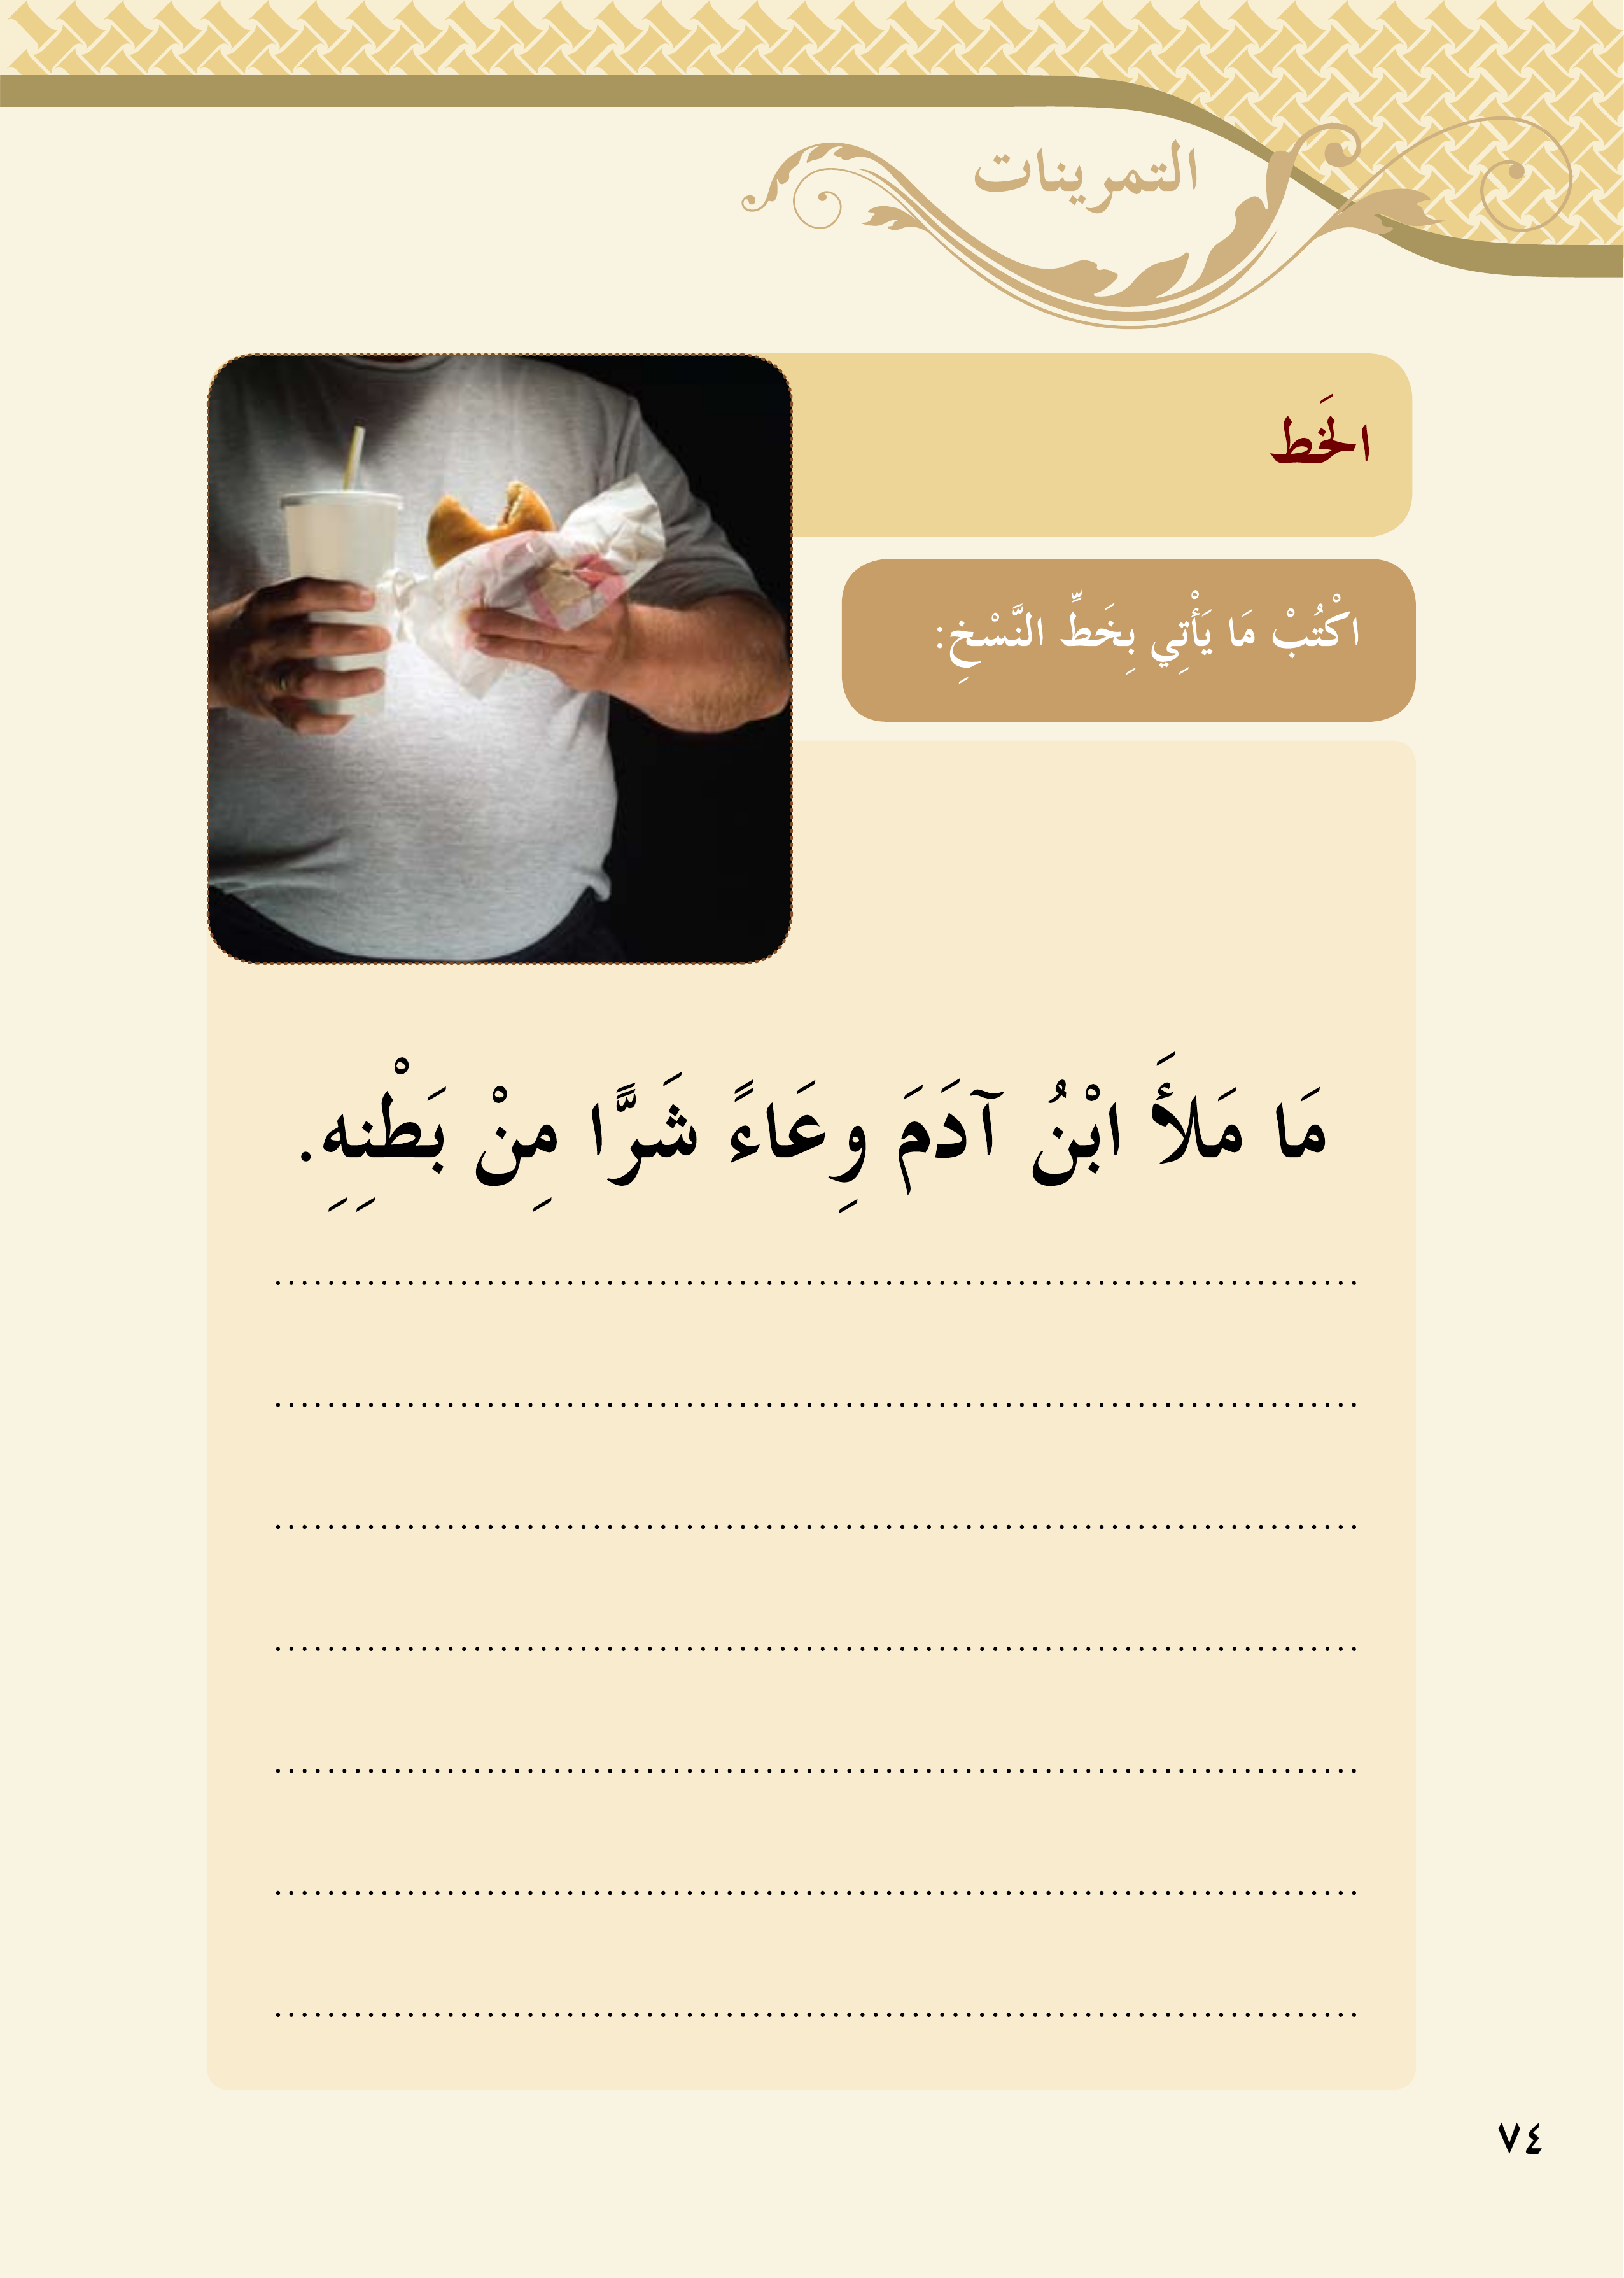 التمرينات
الخَط
اكْتُبْ مَا يَأْتِي بِخَطِّ النَّسْخِ:
مَا مَلأَ ابْنُ آدَمَ وِعَاءً شَرًّا مِنْ بَطْنِهِ.
٧٤